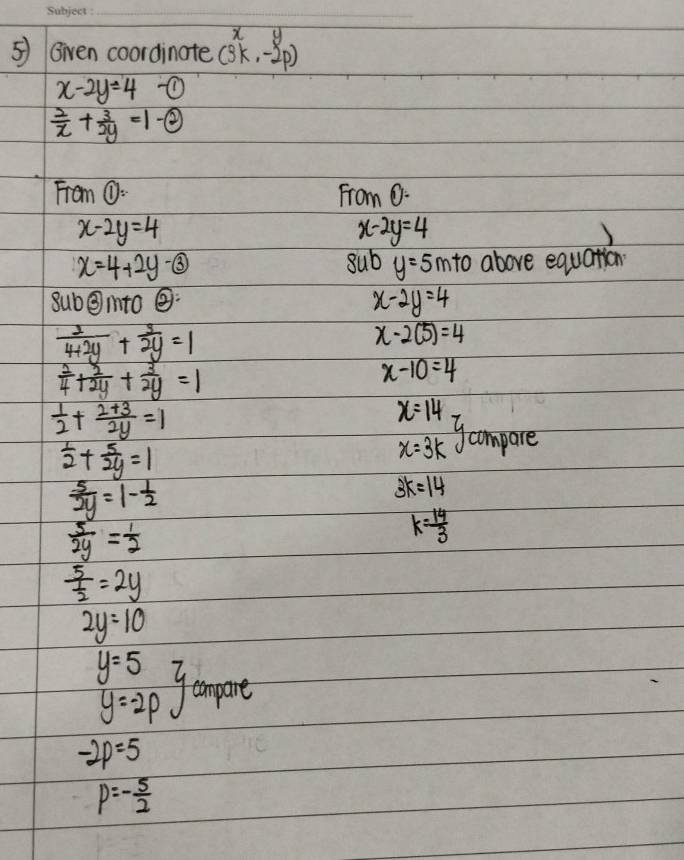 Subject :
x y
5) Given coordinate (3k, -2p)
x-2y=4 -①
2/x + 3/2y =1-②
From ①:
x-2y=4
x=4+2y-③
Sub ③ into ②:
2/4+2y + 3/2y =1
2/4 + 2/2y + 3/2y =1
1/2 + 2+3/2y =1
1/2 + 5/2y =1
5/2y =1-1/2
5/2y = 1/2
5/1/2 =2y
2y=10
y=5
y=-2p } compare
-2p=5
p=-5/2
From ①:
x-2y=4
Sub y=5 into above equation
x-2y=4
x-2(5)=4
x-10=4
x=14
x=3k } compare
3k=14
k=14/3